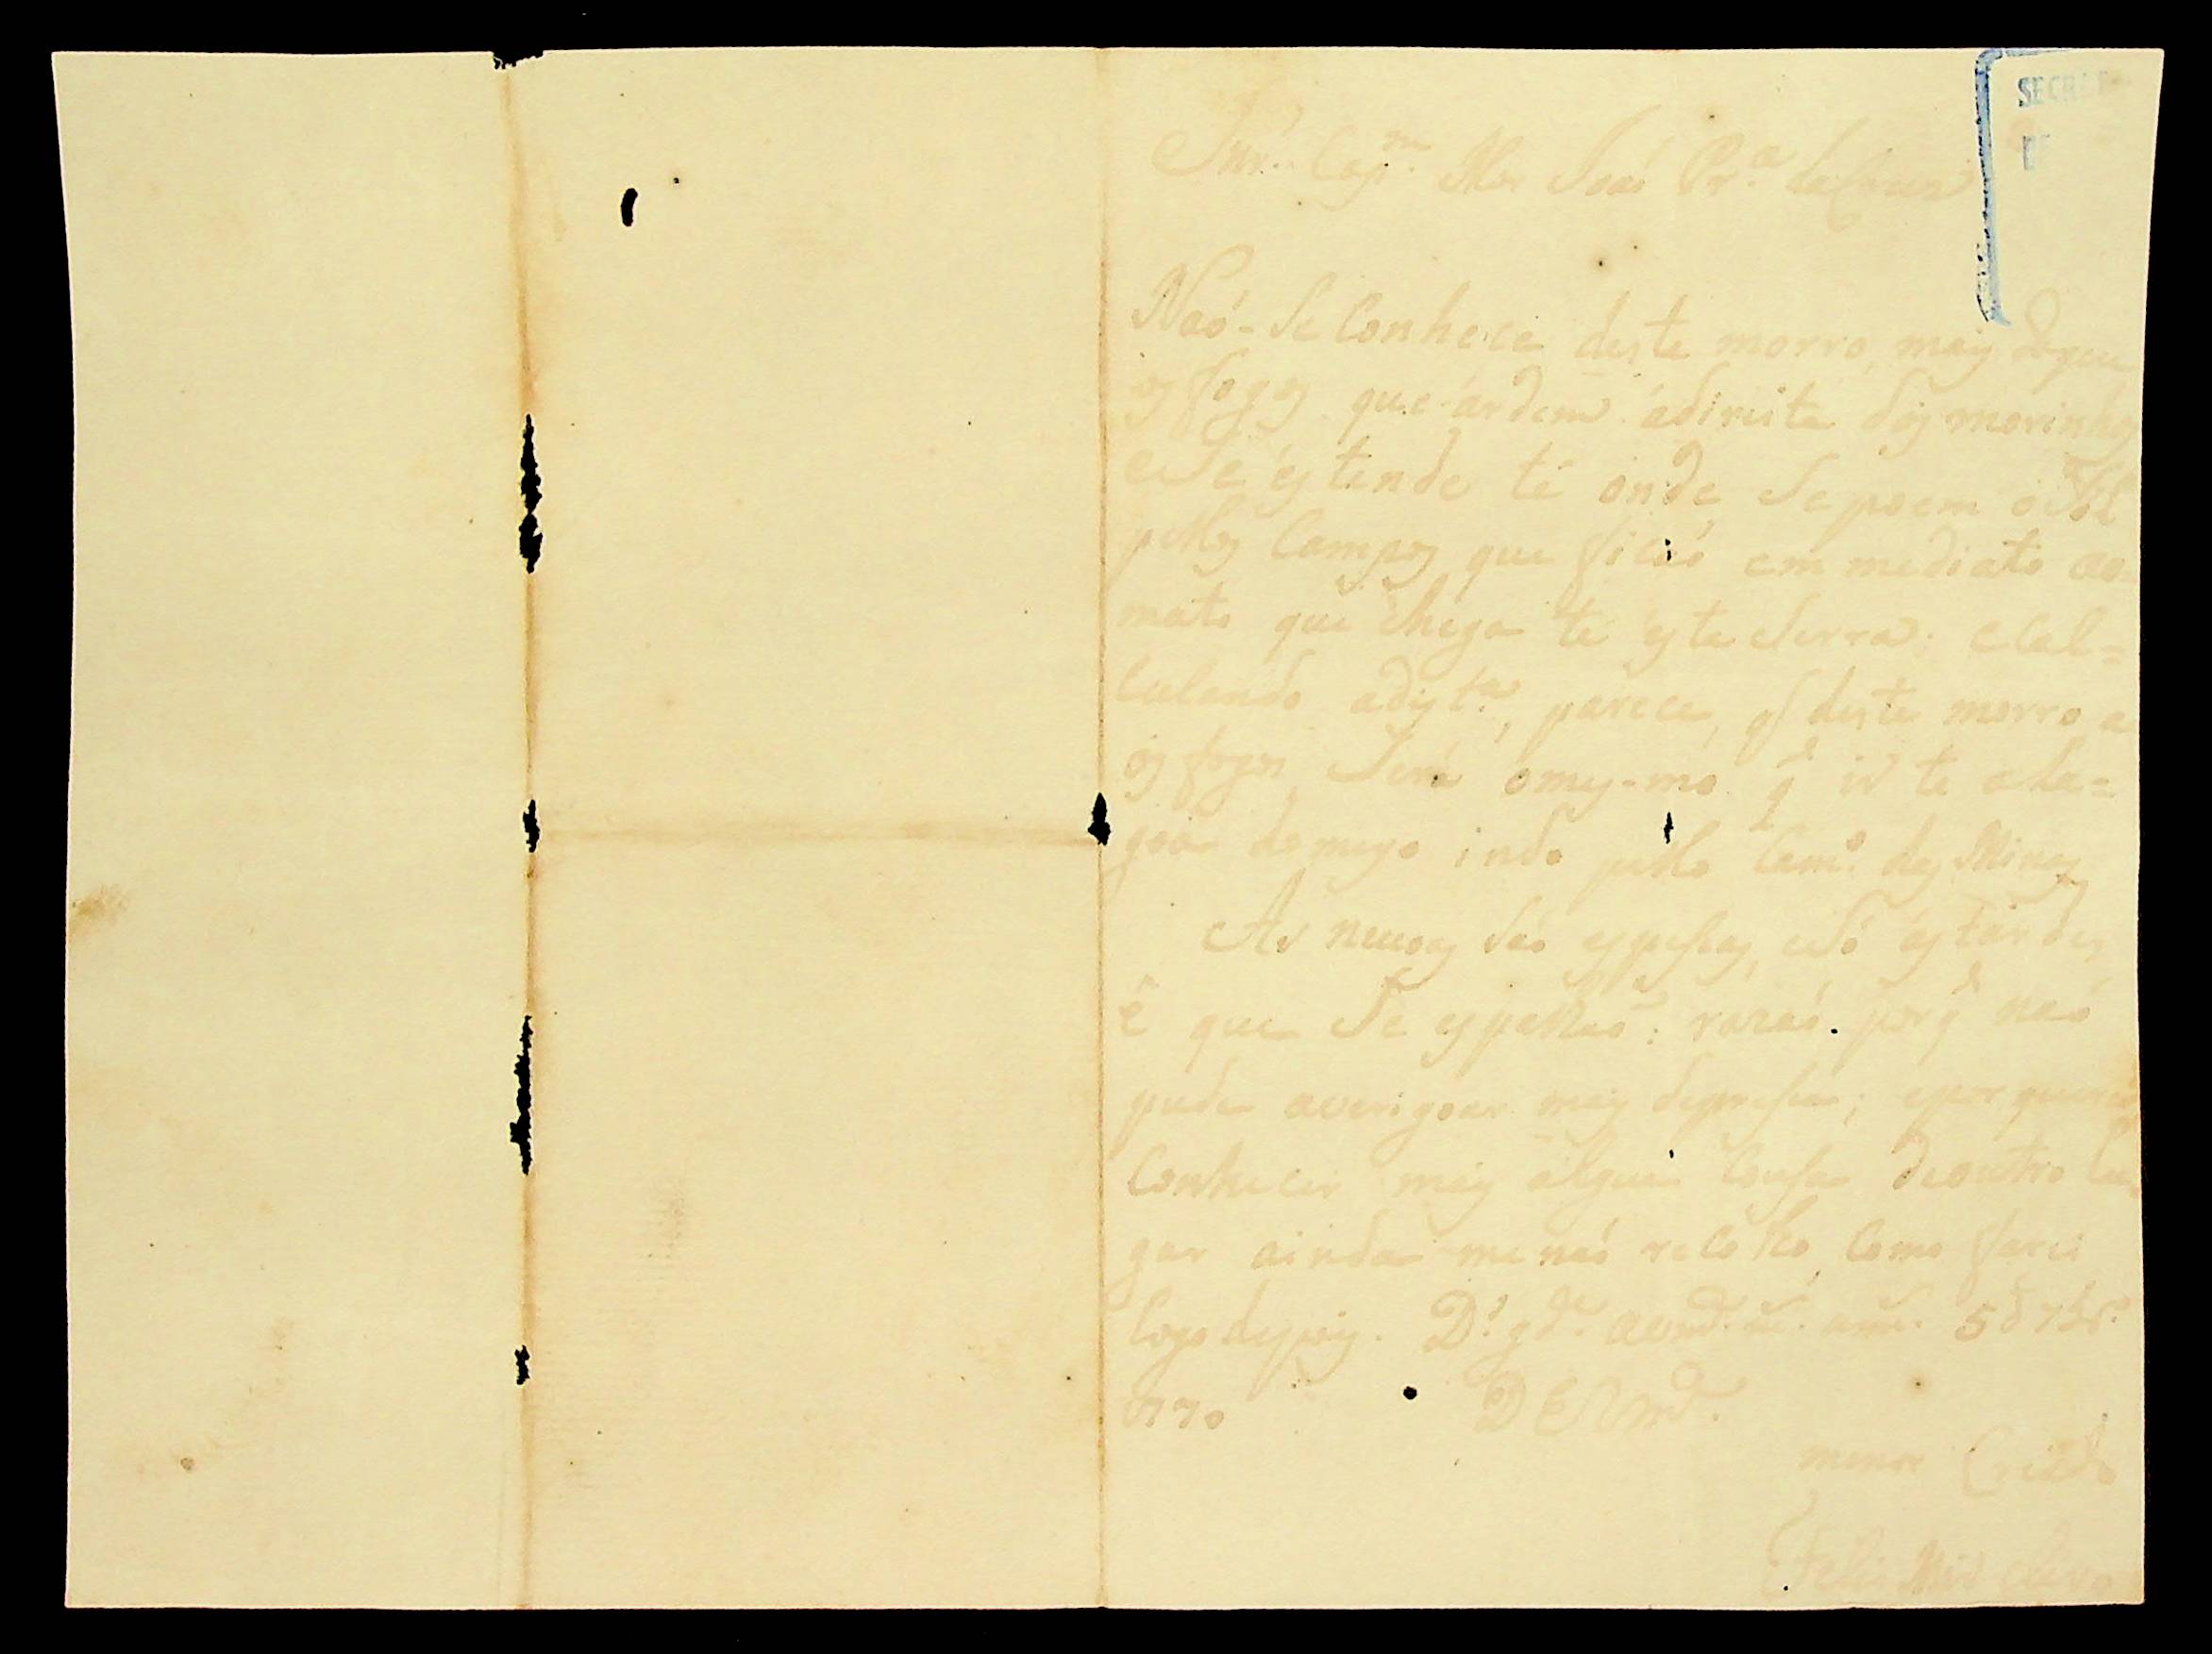 SECRE
DE
Snr. Capm. Mor João Pra. da Cruz
Naó-Se Conhece deste morro, mais doque
os fogos que árdem ádireita dos morinhos
eSe éstende té onde Se poem oSol
pellos Campos que ficaó em mediato ao
mato que chega té esta Serra; eCal=
culando adista., parece, q deste morro a
os fogos Será omes-mo q ir te aLa=
goa do meyo indo pello Camo. das Minas
As nevoas são espeSas, eSó ástardes
é que Se espalhaõ: razaó porq naó
pude averigoar mais depreSa; epor querer
Conhecer mais algua Couza deoutro Lu
gar ainda me naó recolho, Como farei
Logo depois. Ds. gde. avmce. ms. ans. 5 d 7br.o
1770 DEVmce.
menor Criado
Felis